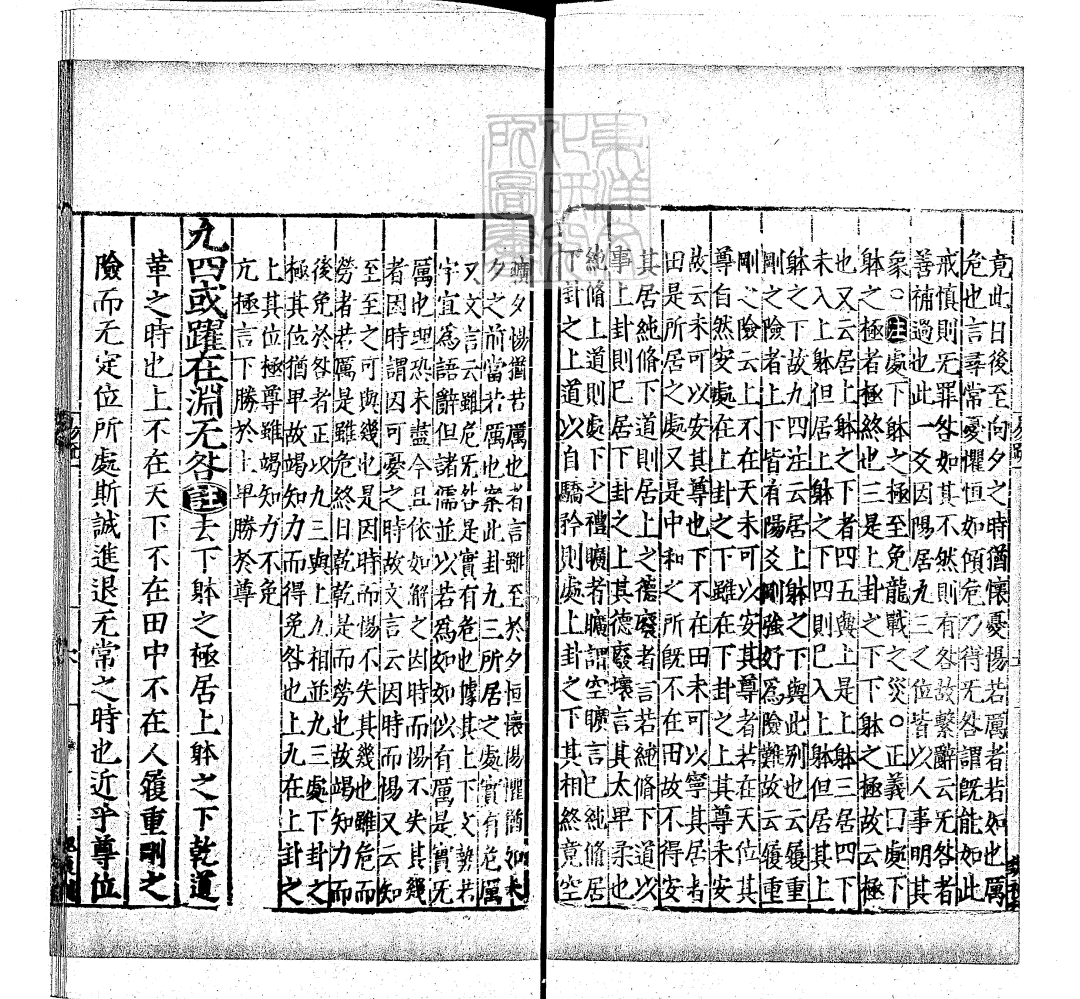 竟此日後至向夕之時猶懷憂惕若厲者若如也厲
危也言尋常憂懼恒如傾危乃得无咎謂旣能如此
戒慎則无罪咎如其不然則有咎故繫辭云无咎者
善補過也此一爻因陽居九三之位皆以人事明其
象○注處下躰之極至免龍戰之災○正義曰處下
躰之極者極終也三是上卦之下下躰之極故云極
也又云居上躰之下者四五與上是上躰三居四下
未入上躰但居上躰之下四則已入上躰但居其上
躰之下故九四注云居上躰之下與此別也云履重
剛之險者上下皆有陽爻剛強好為險難故云履重
剛之險云上不在天未可以安其尊者若在天位其
尊自然安處在上卦之下雖在下卦之上其尊未安
故云未可以安其尊也下不在田未可以寧其居者
田是所居之處又是中和之所旣不在田故不得安
其居純脩下道則居上之德廢者言若純脩下道以
事上卦則已居下卦之上其德廢壞言其太卑柔也
純脩上道則處下之禮曠者曠謂空曠言已純脩居
下卦之上道以自驕矜則處上卦之下其相終竟空
曠夕惕猶若厲也者言雖至於夕恒懷惕懼猶如未
夕之前當若厲也案此卦九三所居之處實有危厲
又文言云雖危无咎是實有危也據其上下文勢若
字宜為語辭但諸儒並以若為如如似有厲是實无
厲也理恐未盡今且依如解之因時而惕不失其幾
者因時謂因可憂之時故文言云因時而惕又云知
至至之可與幾也是因時而惕不失其幾也雖危而
勞者若厲是雖危終日乾乾是而勞也故竭知力而
後免於咎者正以九三與上九相並九三處下卦之
極其位猶卑故竭知力而得免咎也上九在上卦之
上其位極尊雖竭知力不免
亢極言下勝於上卑勝於尊
九四或躍在淵无咎注去下躰之極居上躰之下乾道
革之時也上不在天下不在田中不在人履重剛之
險而无定位所處斯誠進退无常之時也近乎尊位